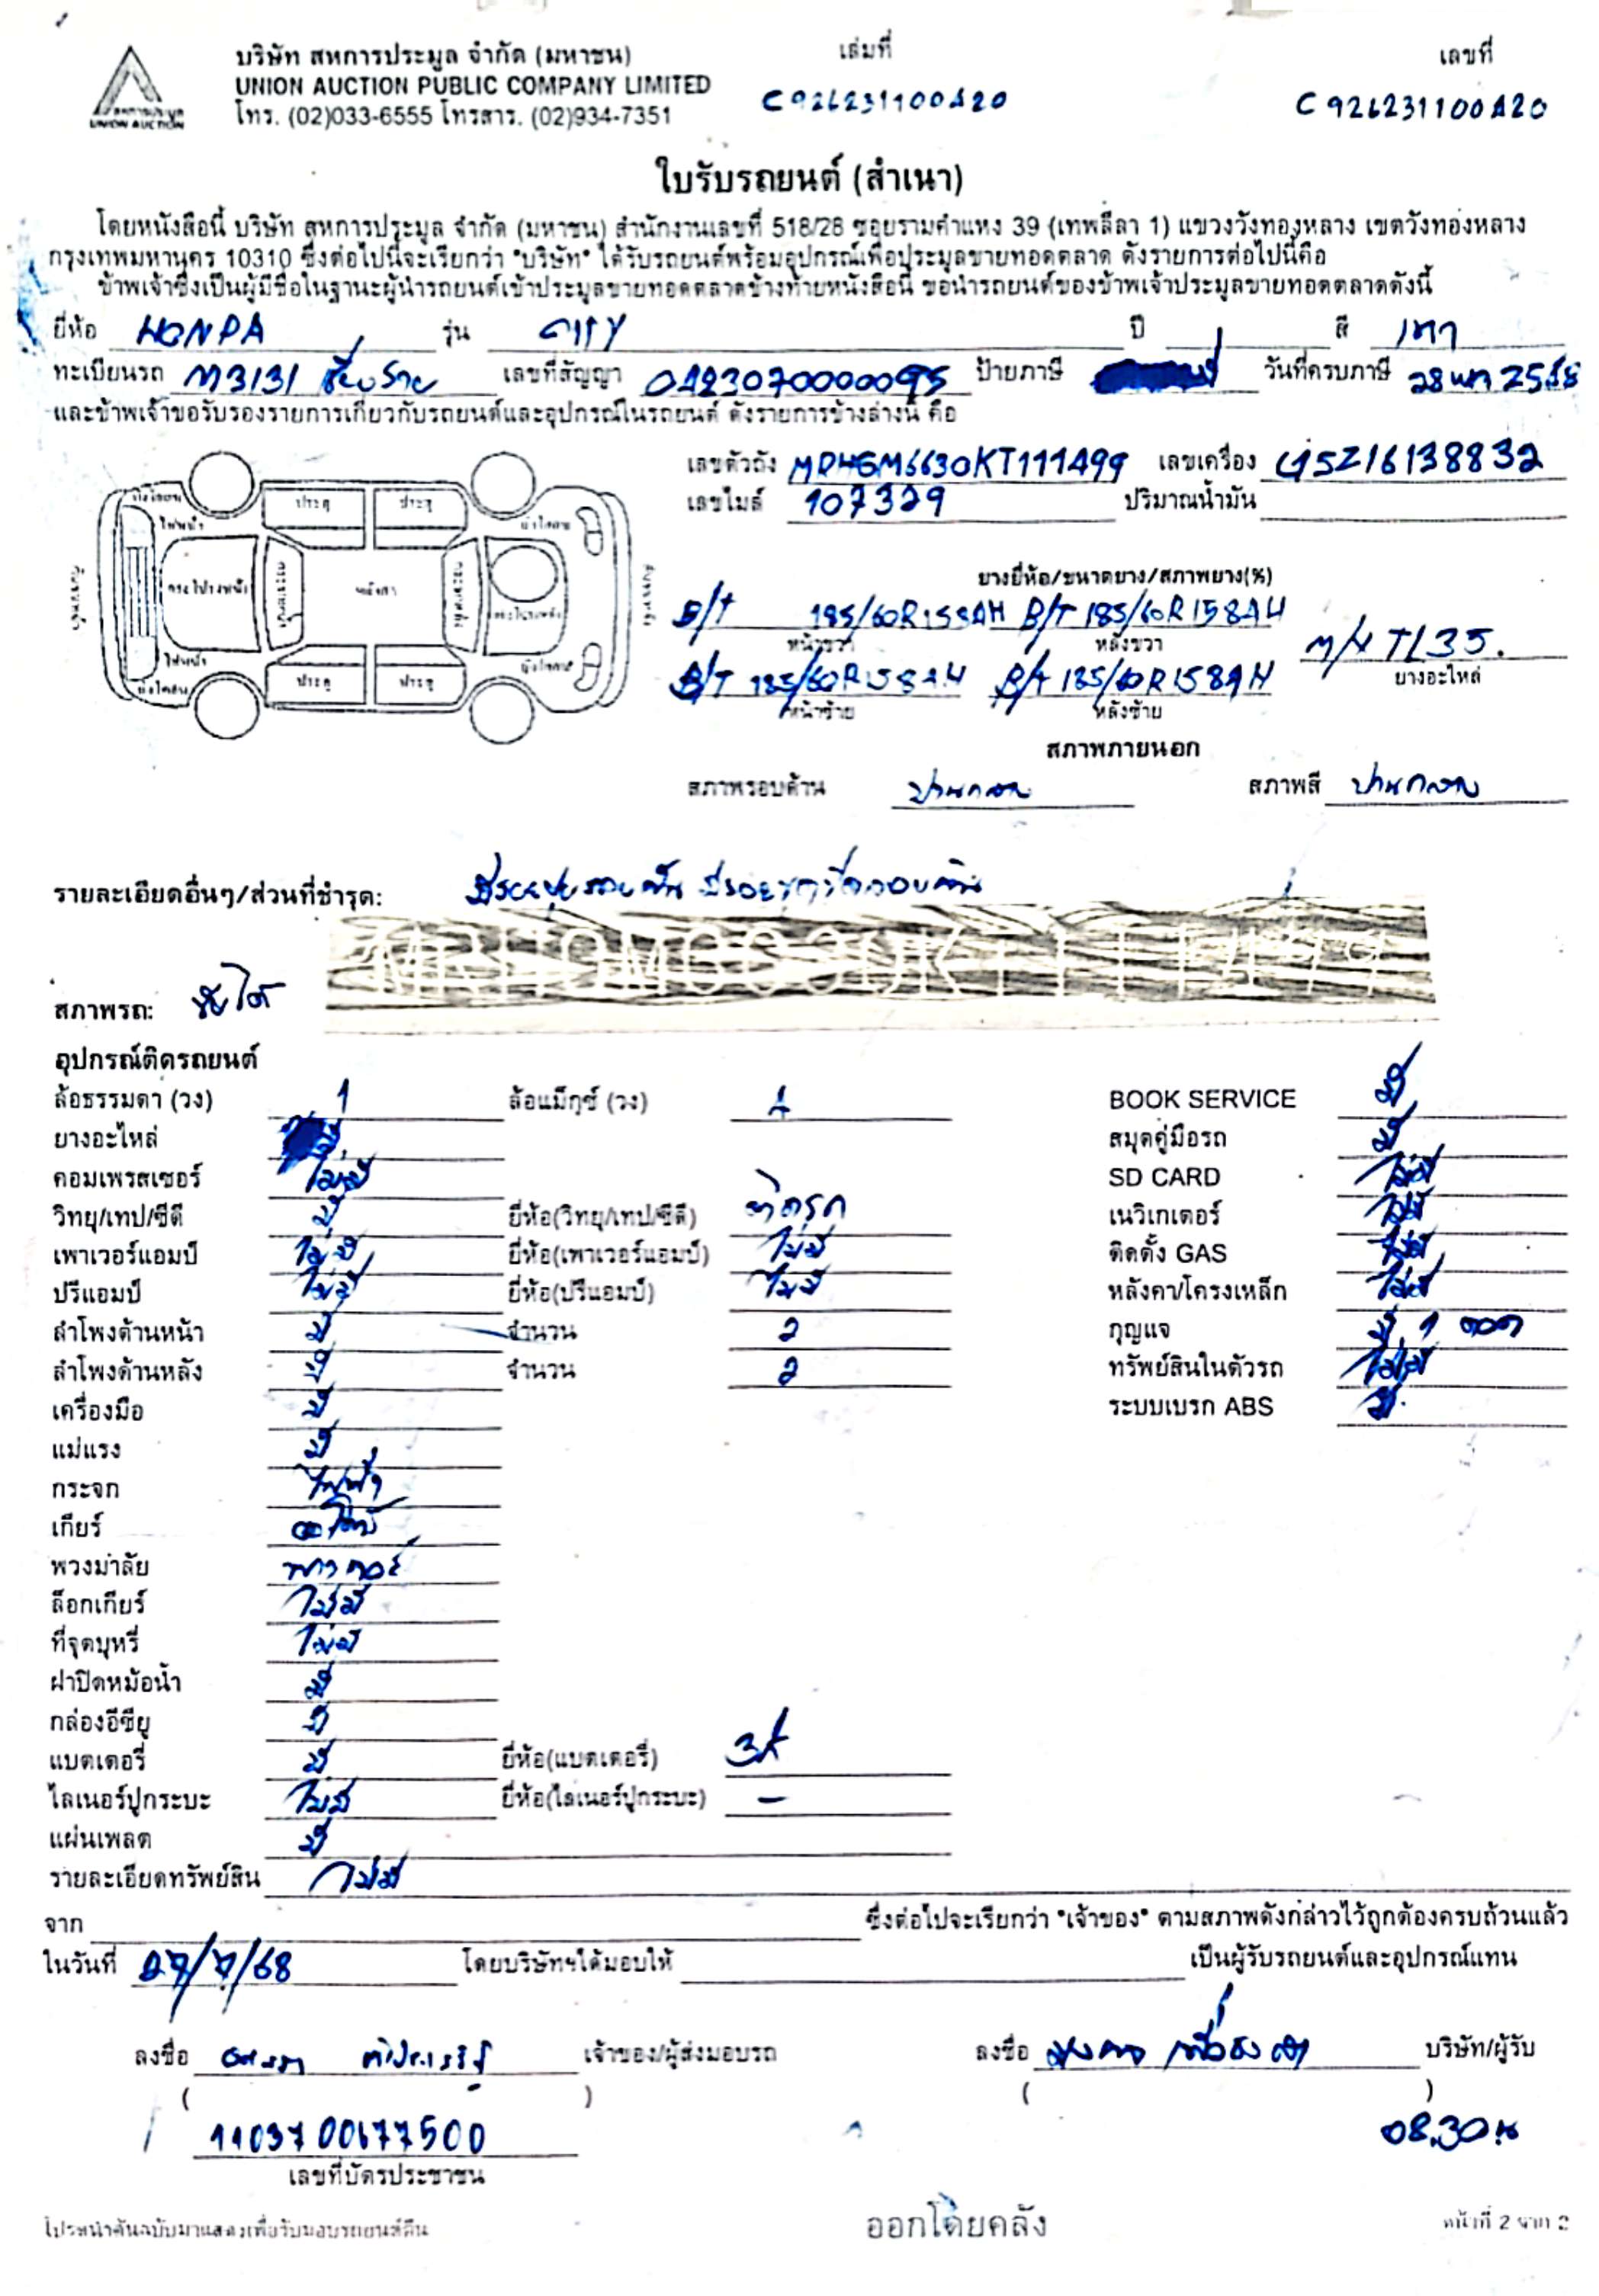 บริษัท สหการประมูล จำกัด (มหาชน) เล่มที่ เลขที่
UNION AUCTION PUBLIC COMPANY LIMITED
โทร. (02)033-6555 โทรสาร. (02)934-7351
สหการประมูล
UNION AUCTION
ใบรับรถยนต์ (สำเนา)
โดยหนังสือนี้ บริษัท สหการประมูล จำกัด (มหาชน) สำนักงานเลขที่ 518/28 ซอยรามคำแหง 39 (เทพลีลา 1) แขวงวังทองหลาง เขตวังทองหลาง
กรุงเทพมหานคร 10310 ซึ่งต่อไปนี้จะเรียกว่า "บริษัท" ได้รับรถยนต์พร้อมอุปกรณ์เพื่อประมูลขายทอดตลาด ดังรายการต่อไปนี้คือ
ข้าพเจ้าซึ่งเป็นผู้มีชื่อในฐานะผู้นำรถยนต์เข้าประมูลขายทอดตลาดข้างท้ายหนังสือนี้ ขอนำรถยนต์ของข้าพเจ้าประมูลขายทอดตลาดดังนี้
ยี่ห้อ HONDA รุ่น CITY ปี สี เทา
ทะเบียนรถ 3131 เชียงราย เลขที่สัญญา ป้ายภาษี วันที่ครบภาษี
และข้าพเจ้าขอรับรองรายการเกี่ยวกับรถยนต์และอุปกรณ์ในรถยนต์ ดังรายการข้างล่างนี้ คือ
เลขตัวถัง เลขเครื่อง
เลขไมล์ 107329 ปริมาณน้ำมัน
ไฟหน้า ประตู ประตู
กระโปรงหน้า หลังคา กระโปรงหลัง
ไฟหน้า ประตู ประตู
ยางยี่ห้อ/ขนาดยาง/สภาพยาง(%)
B/T 185/60R15 84H B/T 185/60R15 84H
หน้าขวา หลังขวา
B/T 185/60R15 84H B/T 185/60R15 84H
หน้าซ้าย หลังซ้าย ยางอะไหล่
สภาพภายนอก
สภาพรอบด้าน ปานกลาง สภาพสี ปานกลาง
รายละเอียดอื่นๆ/ส่วนที่ชำรุด:
สภาพรถ: ขับได้
อุปกรณ์ติดรถยนต์
ล้อธรรมดา (วง) 1 ล้อแม็กซ์ (วง) 4 BOOK SERVICE มี
ยางอะไหล่ มี สมุดคู่มือรถ มี
คอมเพรสเซอร์ ไม่มี SD CARD ไม่มี
วิทยุ/เทป/ซีดี มี ยี่ห้อ(วิทยุ/เทป/ซีดี) ติดรถ เนวิเกเตอร์ ไม่มี
เพาเวอร์แอมป์ ไม่มี ยี่ห้อ(เพาเวอร์แอมป์) ไม่มี ติดตั้ง GAS ไม่มี
ปรีแอมป์ ไม่มี ยี่ห้อ(ปรีแอมป์) ไม่มี หลังคา/โครงเหล็ก ไม่มี
ลำโพงด้านหน้า มี จำนวน 2 กุญแจ มี 1 ดอก
ลำโพงด้านหลัง มี จำนวน 2 ทรัพย์สินในตัวรถ ไม่มี
เครื่องมือ มี ระบบเบรก ABS มี
แม่แรง มี
กระจก ไฟฟ้า
เกียร์ ออโต้
พวงมาลัย พาวเวอร์
ล็อกเกียร์ ไม่มี
ที่จุดบุหรี่ ไม่มี
ฝาปิดหม้อน้ำ มี
กล่องอีซียู มี
แบตเตอรี่ มี ยี่ห้อ(แบตเตอรี่) 3K
ไลเนอร์ปูกระบะ ไม่มี ยี่ห้อ(ไลเนอร์ปูกระบะ) -
แผ่นเพลต มี
รายละเอียดทรัพย์สิน ไม่มี
จาก ซึ่งต่อไปจะเรียกว่า "เจ้าของ" ตามสภาพดังกล่าวไว้ถูกต้องครบถ้วนแล้ว
ในวันที่ 27/7/68 โดยบริษัทฯได้มอบให้ เป็นผู้รับรถยนต์และอุปกรณ์แทน
ลงชื่อ เจ้าของ/ผู้ส่งมอบรถ ลงชื่อ บริษัท/ผู้รับ
( ) ( )
1103700177500 08.30 น
เลขที่บัตรประชาชน
โปรดนำต้นฉบับมาแสดงเพื่อรับมอบรถยนต์คืน ออกโดยคลัง หน้าที่ 2 จาก 2